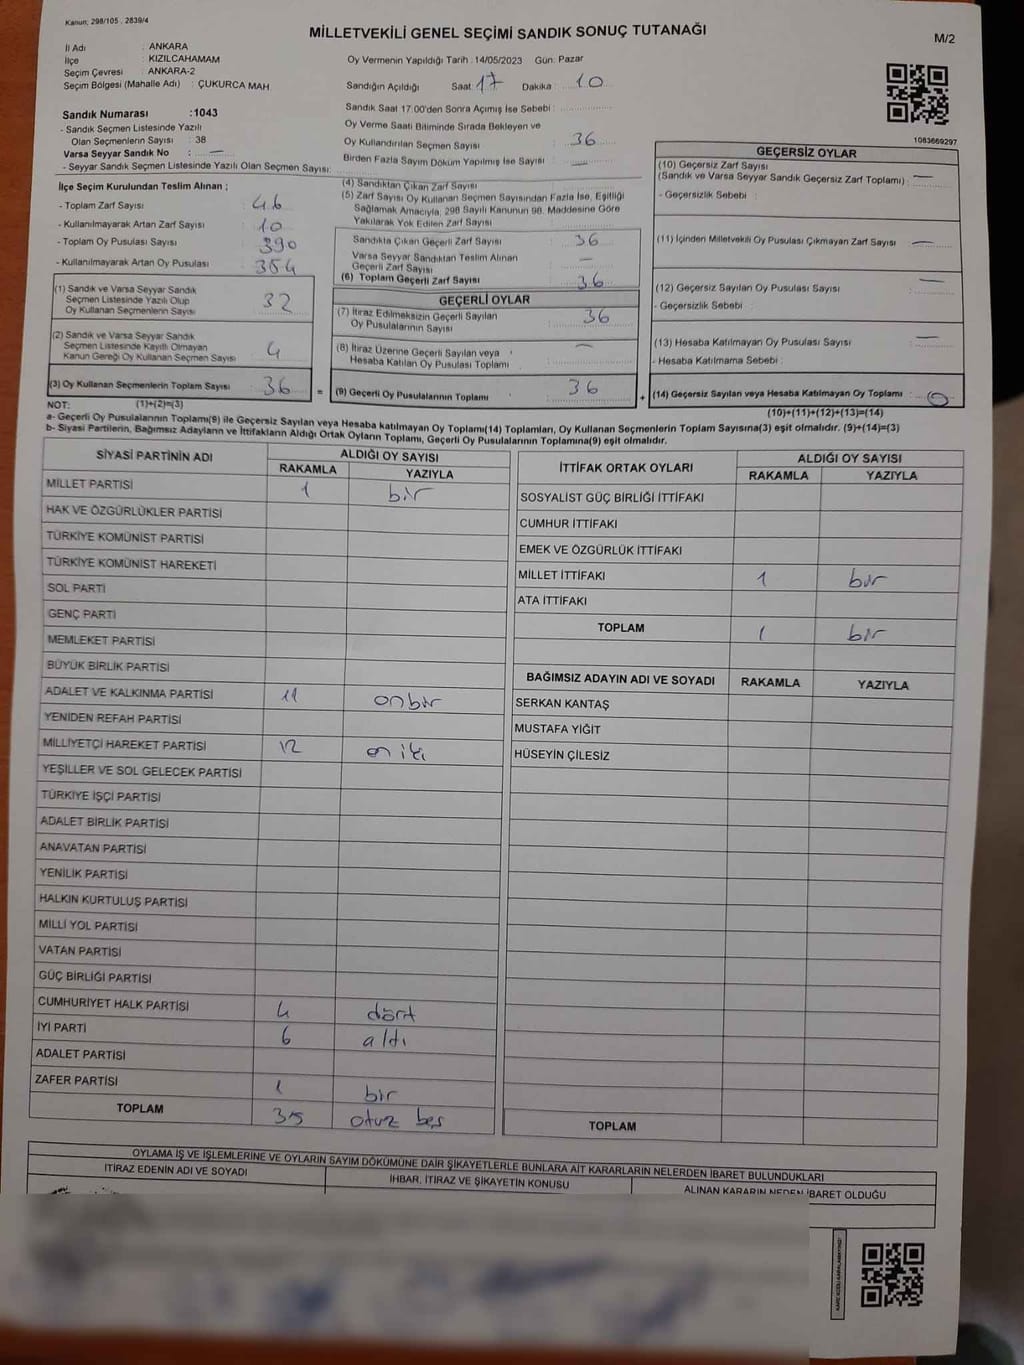 Kanun; 298/105 , 2839/4
MİLLETVEKİLİ GENEL SEÇİMİ SANDIK SONUÇ TUTANAĞI
M/2
İl Adı : ANKARA
İlçe : KIZILCAHAMAM
Seçim Çevresi : ANKARA-2
Seçim Bölgesi (Mahalle Adı) : ÇUKURCA MAH
Oy Vermenin Yapıldığı Tarih : 14/05/2023 Gün: Pazar
Sandığın Açıldığı Saat : 17 Dakika : 10
Sandık Saat 17:00'den Sonra Açımış İse Sebebi :
Oy Verme Saati Bitiminde Sırada Bekleyen ve
Oy Kullandırılan Seçmen Sayısı : 36
Birden Fazla Sayım Döküm Yapılmış İse Sayısı : —
1083669297
Sandık Numarası :1043
- Sandık Seçmen Listesinde Yazılı
Olan Seçmenlerin Sayısı : 38
Varsa Seyyar Sandık No : —
- Seyyar Sandık Seçmen Listesinde Yazılı Olan Seçmen Sayısı:
İlçe Seçim Kurulundan Teslim Alınan ;
- Toplam Zarf Sayısı : 46
- Kullanılmayarak Artan Zarf Sayısı : 10
- Toplam Oy Pusulası Sayısı : 390
- Kullanılmayarak Artan Oy Pusulası : 354
(1) Sandık ve Varsa Seyyar Sandık
Seçmen Listesinde Yazılı Olup
Oy Kullanan Seçmenlerin Sayısı : 32
(2) Sandık ve Varsa Seyyar Sandık
Seçmen Listesinde Kayıtlı Olmayan
Kanun Gereği Oy Kullanan Seçmen Sayısı : 4
(3) Oy Kullanan Seçmenlerin Toplam Sayısı : 36 =
(4) Sandıktan Çıkan Zarf Sayısı :
(5) Zarf Sayısı Oy Kullanan Seçmen Sayısından Fazla İse, Eşitliği
Sağlamak Amacıyla, 298 Sayılı Kanunun 98. Maddesine Göre
Yakılarak Yok Edilen Zarf Sayısı :
Sandıkta Çıkan Geçerli Zarf Sayısı : 36
Varsa Seyyar Sandıktan Teslim Alınan
Geçerli Zarf Sayısı : —
(6) Toplam Geçerli Zarf Sayısı : 36
GEÇERLİ OYLAR
(7) İtiraz Edilmeksizin Geçerli Sayılan
Oy Pusulalarının Sayısı : 36
(8) İtiraz Üzerine Geçerli Sayılan veya
Hesaba Katılan Oy Pusulası Toplamı : —
(9) Geçerli Oy Pusulalarının Toplamı : 36 +
GEÇERSİZ OYLAR
(10) Geçersiz Zarf Sayısı
(Sandık ve Varsa Seyyar Sandık Geçersiz Zarf Toplamı) : —
- Geçersizlik Sebebi :
(11) İçinden Milletvekili Oy Pusulası Çıkmayan Zarf Sayısı : —
(12) Geçersiz Sayılan Oy Pusulası Sayısı : —
- Geçersizlik Sebebi :
(13) Hesaba Katılmayan Oy Pusulası Sayısı : —
- Hesaba Katılmama Sebebi :
(14) Geçersiz Sayılan veya Hesaba Katılmayan Oy Toplamı : 0
(10)+(11)+(12)+(13)=(14)
NOT: (1)+(2)=(3)
a- Geçerli Oy Pusulalarının Toplamı(9) ile Geçersiz Sayılan veya Hesaba katılmayan Oy Toplamı(14) Toplamları, Oy Kullanan Seçmenlerin Toplam Sayısına(3) eşit olmalıdır. (9)+(14)=(3)
b- Siyasi Partilerin, Bağımsız Adayların ve İttifakların Aldığı Ortak Oyların Toplamı, Geçerli Oy Pusulalarının Toplamına(9) eşit olmalıdır.
SİYASİ PARTİNİN ADI ALDIĞI OY SAYISI
RAKAMLA YAZIYLA
MİLLET PARTİSİ 1 bir
HAK VE ÖZGÜRLÜKLER PARTİSİ
TÜRKİYE KOMÜNİST PARTİSİ
TÜRKİYE KOMÜNİST HAREKETİ
SOL PARTİ
GENÇ PARTİ
MEMLEKET PARTİSİ
BÜYÜK BİRLİK PARTİSİ
ADALET VE KALKINMA PARTİSİ 11 onbir
YENİDEN REFAH PARTİSİ
MİLLİYETÇİ HAREKET PARTİSİ 12 oniki
YEŞİLLER VE SOL GELECEK PARTİSİ
TÜRKİYE İŞÇİ PARTİSİ
ADALET BİRLİK PARTİSİ
ANAVATAN PARTİSİ
YENİLİK PARTİSİ
HALKIN KURTULUŞ PARTİSİ
MİLLİ YOL PARTİSİ
VATAN PARTİSİ
GÜÇ BİRLİĞİ PARTİSİ
CUMHURİYET HALK PARTİSİ 4 dört
İYİ PARTİ 6 altı
ADALET PARTİSİ
ZAFER PARTİSİ 1 bir
TOPLAM 35 otuz beş
İTTİFAK ORTAK OYLARI ALDIĞI OY SAYISI
RAKAMLA YAZIYLA
SOSYALİST GÜÇ BİRLİĞİ İTTİFAKI
CUMHUR İTTİFAKI
EMEK VE ÖZGÜRLÜK İTTİFAKI
MİLLET İTTİFAKI 1 bir
ATA İTTİFAKI
TOPLAM 1 bir
BAĞIMSIZ ADAYIN ADI VE SOYADI RAKAMLA YAZIYLA
SERKAN KANTAŞ
MUSTAFA YİĞİT
HÜSEYİN ÇİLESİZ
TOPLAM
OYLAMA İŞ VE İŞLEMLERİNE VE OYLARIN SAYIM DÖKÜMÜNE DAİR ŞİKAYETLERLE BUNLARA AİT KARARLARIN NELERDEN İBARET BULUNDUKLARI
İTİRAZ EDENİN ADI VE SOYADI İHBAR, İTİRAZ VE ŞİKAYETİN KONUSU ALINAN KARARIN NEDEN İBARET OLDUĞU